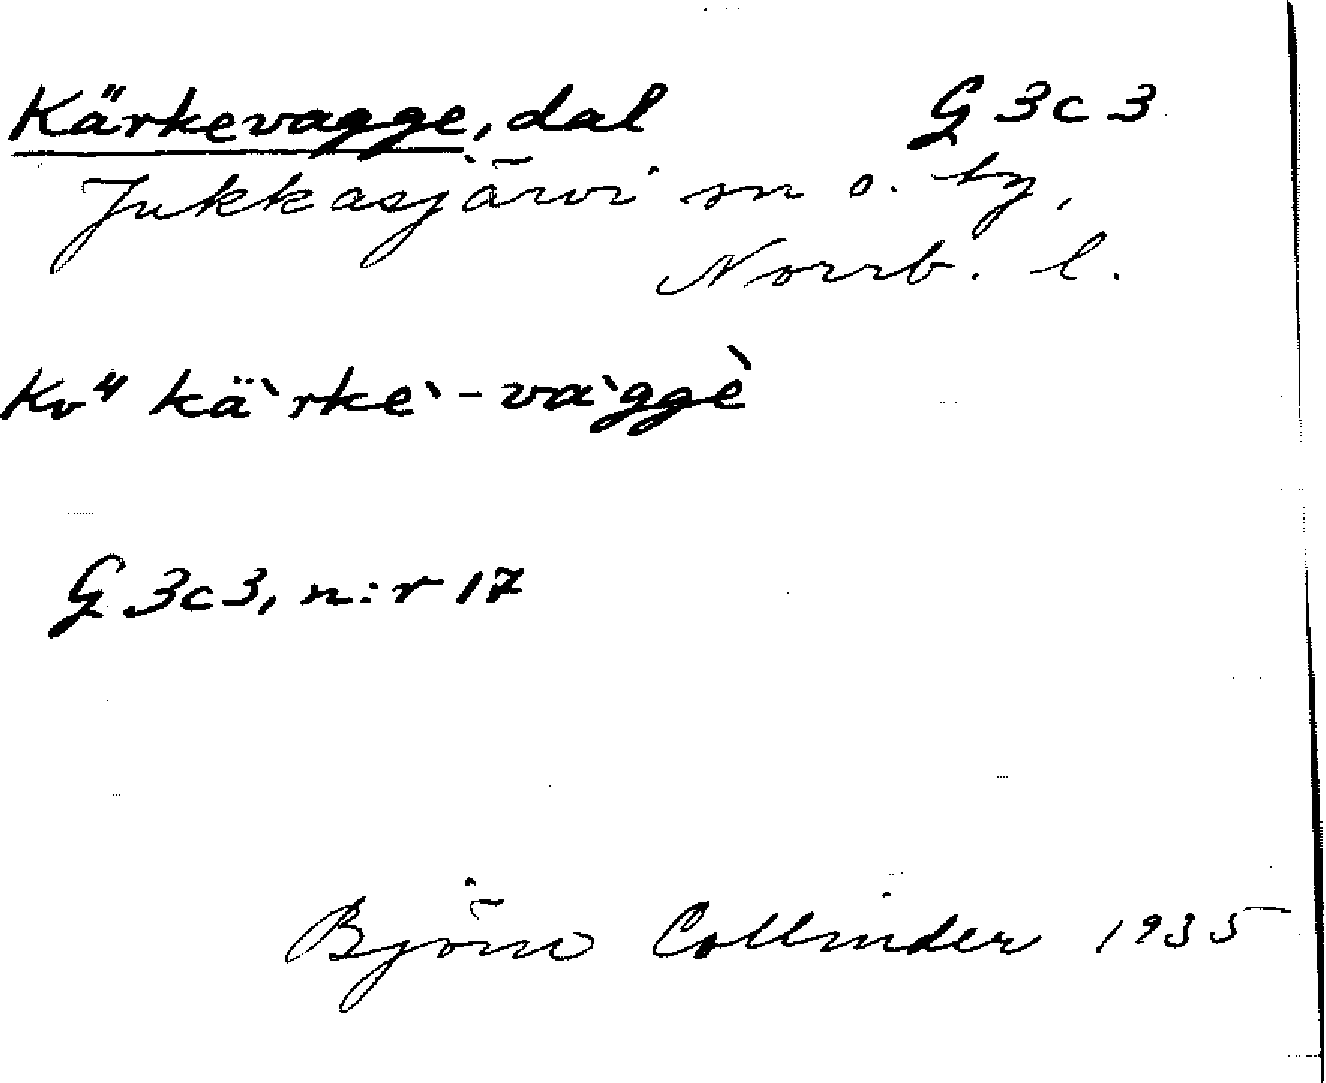 Kärkevagge, dal G 3 c 3
Jukkasjärvi sn o. tg,
Norrb. l.
Kv" kä`rke`-va`ggè
G 3 c 3, n:r 17
Björn Collinder 1935